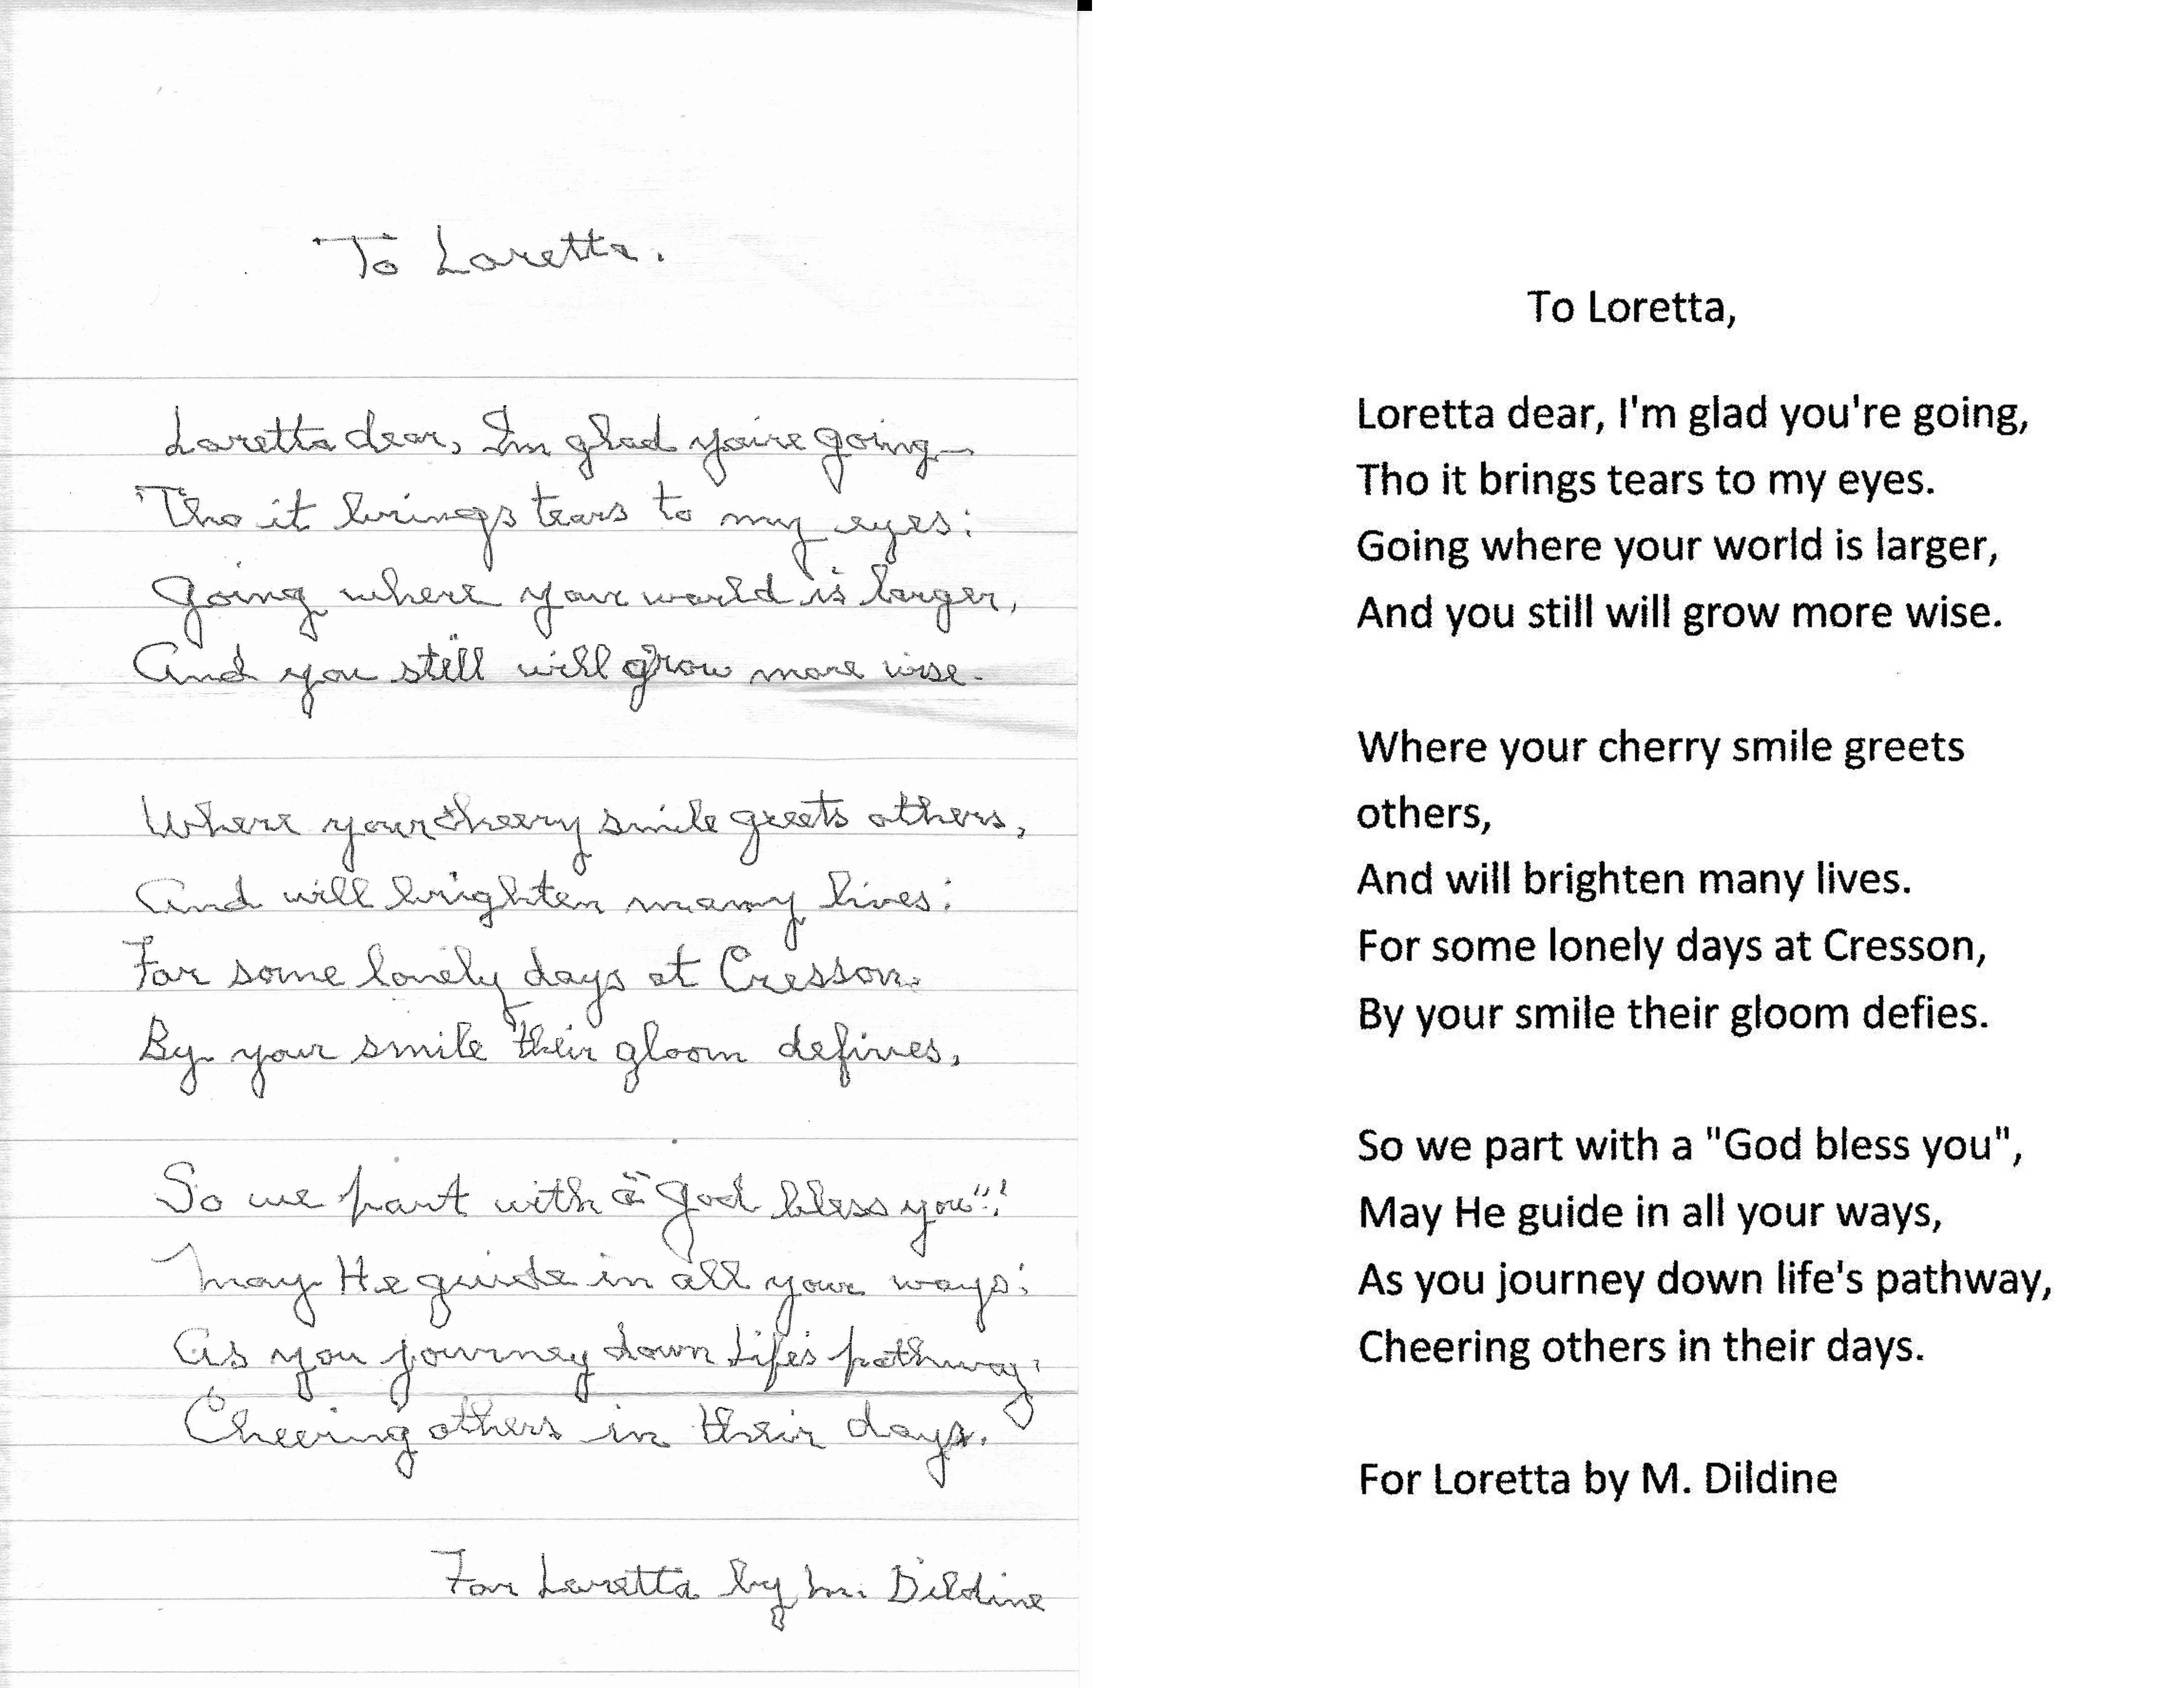 To Loretta.
Loretta dear, I'm glad you're going
Tho it brings tears to my eyes:
Going where your world is larger,
And you still will grow more wise.
Where your cheery smile greets others,
And will brighten many lives:
For some lonely days at Cresson.
By your smile their gloom defines,
So we part with a "God bless you"!
May He guide in all your ways:
As you journey down Life's pathway,
Cheering others in their days.
For Loretta by M. Dildine
To Loretta,
Loretta dear, I'm glad you're going,
Tho it brings tears to my eyes.
Going where your world is larger,
And you still will grow more wise.
Where your cherry smile greets
others,
And will brighten many lives.
For some lonely days at Cresson,
By your smile their gloom defies.
So we part with a "God bless you",
May He guide in all your ways,
As you journey down life's pathway,
Cheering others in their days.
For Loretta by M. Dildine